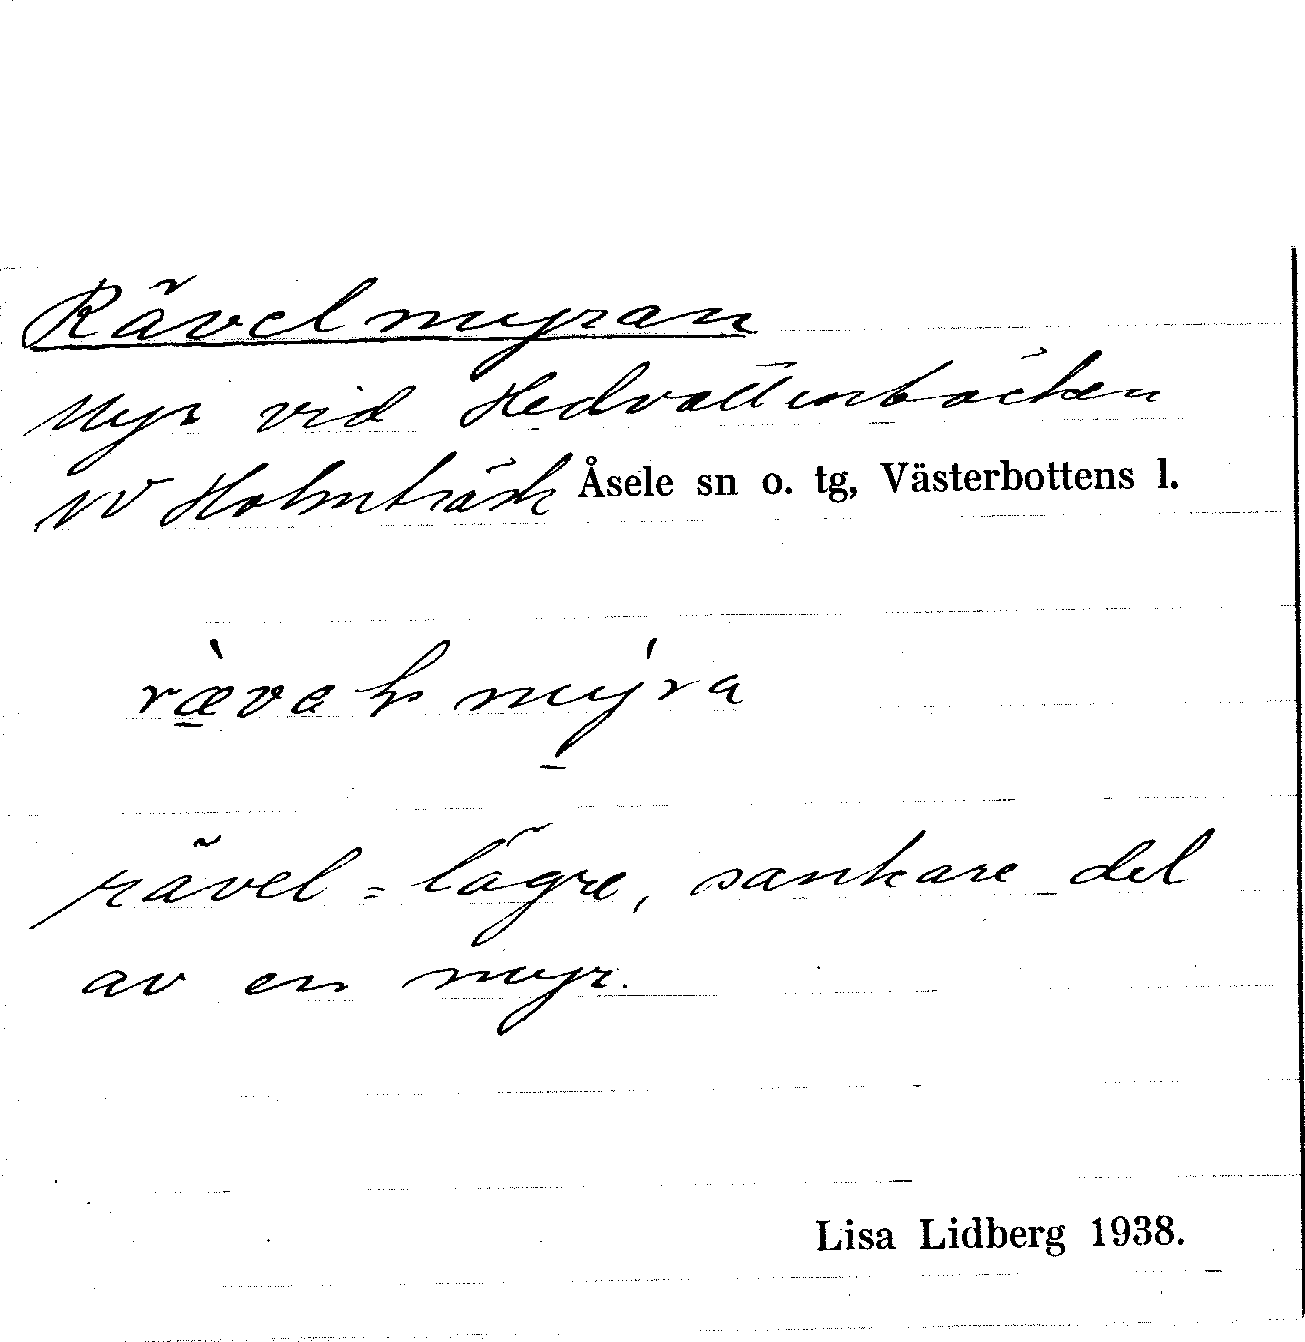 Rävelmyran
Myr vid Hedvattenbäcken
NV Holmträsk Åsele sn o. tg, Västerbottens l.
rävel = lägre, sankare del
av en myr.
Lisa Lidberg 1938.